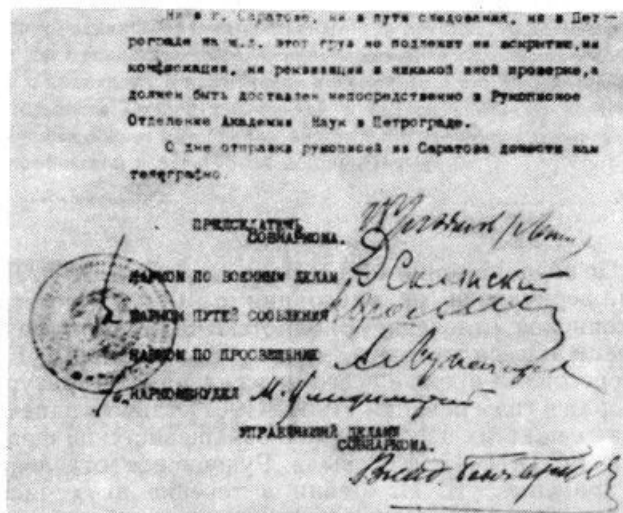 Ни в г. Саратове, ни в пути следования, ни в Пет—
рограде на ж.д. этот груз не подлежит ни вскрытию, ни
конфискации, ни реквизиции и никакой иной проверке, а
должен быть доставлен непосредственно в Рукописное
Отделение Академии Наук в Петрограде.
О дне отправки рукописей из Саратова донести нам
телеграфно.
ПРЕДСЕДАТЕЛЬ
СОВНАРКОМА.
НАРКОМ ПО ВОЕННЫМ ДЕЛАМ Склянский
НАРКОМ ПУТЕЙ СООБЩЕНИЯ
НАРКОМ ПО ПРОСВЕЩЕНИЮ А. Луначарск
НАРКОМВНУДЕЛ М.
УПРАВЛЯЮЩИЙ ДЕЛАМИ
СОВНАРКОМА.
Влад. Бонч-Бруевич